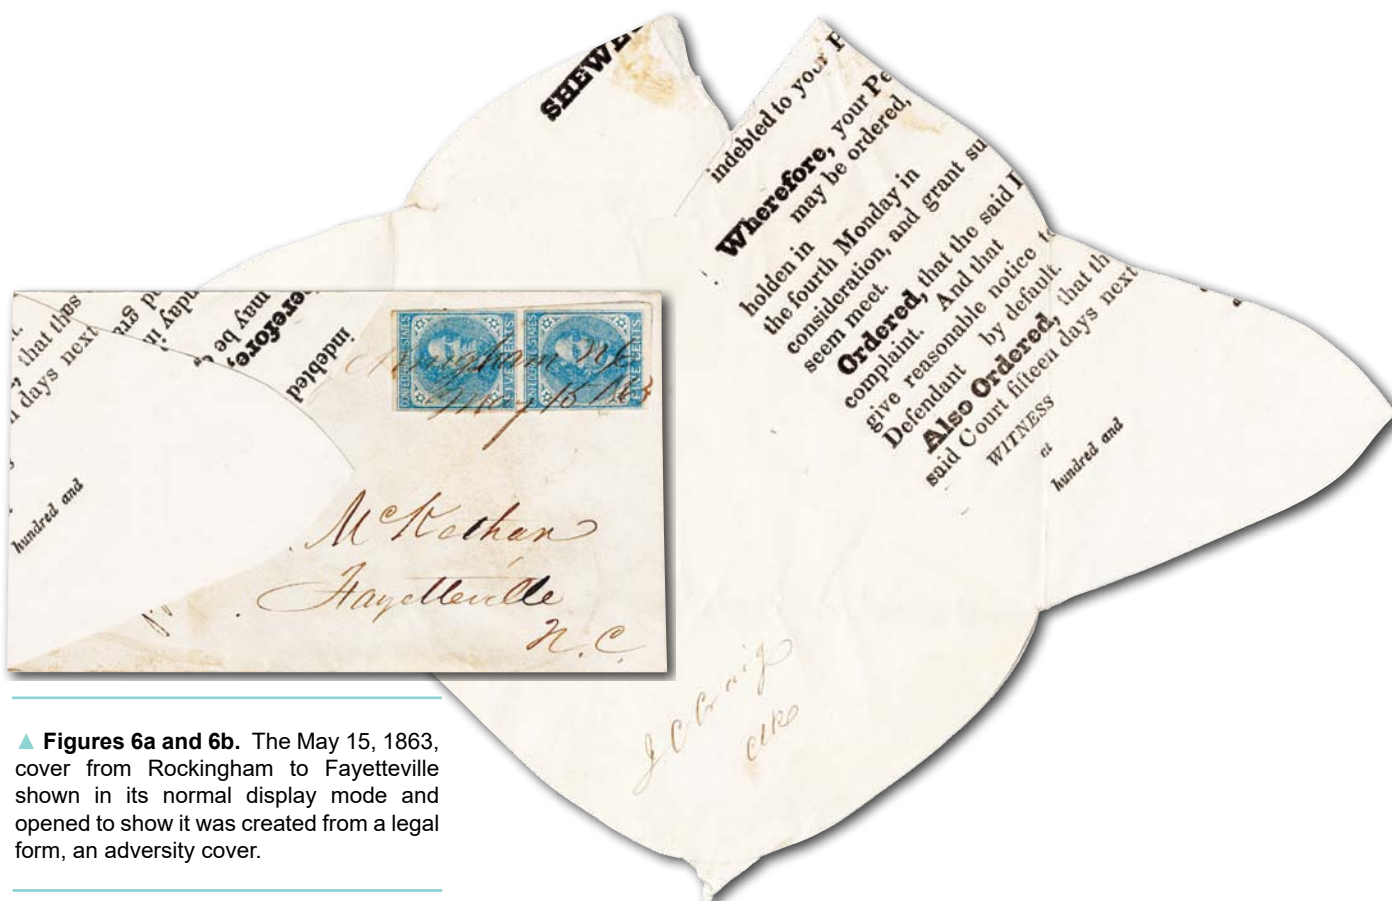 SHEWE
indebted to your P
Wherefore, your Pe
may be ordered,
holden in
the fourth Monday in
consideration, and grant su
seem meet.
Ordered, that the said
complaint. And that
give reasonable notice to
Defendant by default.
Also Ordered, that th
said Court fifteen days next
WITNESS
at
hundred and
J C Craig
clk
that this
days next
nday in
may be
erefore,
indebted
hundred and
CONFEDERATE STATES
FIVE CENTS
CONFEDERATE STATES
FIVE CENTS
N.C.
May 15 1863
McKethan
Fayetteville
N.C.
▲ Figures 6a and 6b. The May 15, 1863,
cover from Rockingham to Fayetteville
shown in its normal display mode and
opened to show it was created from a legal
form, an adversity cover.